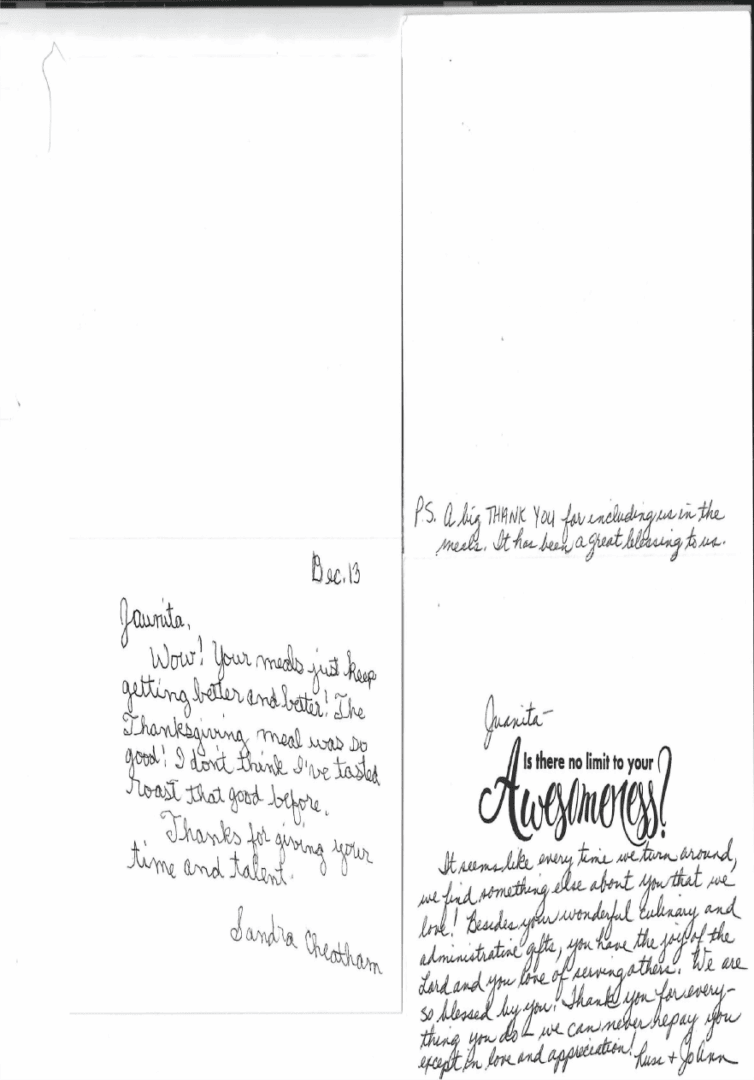 Dec. 13
Jaunita,
Wow! Your meals just keep
getting better and better! The
Thanksgiving meal was so
good! I don't think I've tasted
roast that good before.
Thanks for giving your
time and talent.
Sandra Cheatham
PS. A big THANK YOU for including us in the
meals. It has been a great blessing to us.
Juanita-
Is there no limit to your
Awesomeness?
It seems like every time we turn around,
we find something else about you that we
love! Besides your wonderful culinary and
administrative gifts, you have the joy of the
Lord and you love of serving others. We are
so blessed by you! Thank you for every-
thing you do - we can never repay you
except in love and appreciation!
+ JoAnn